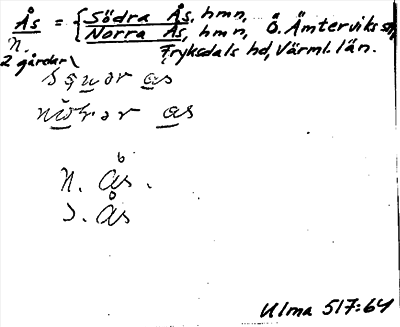 Ås = { Södra Ås, hmn,
N. Norra Ås, hmn, Ö. Ämterviks sn,
2 gårdar Fryksdals hd, Värml. län.
as
as
N. Ås.
S. Ås
Ulma 517:64